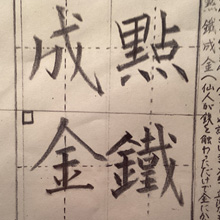 點鐵
成金
點鐵成金(仙人が鉄を触わっただけで金に